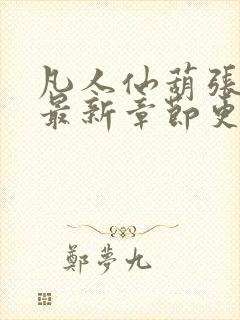 凡人仙葫張
最新章節更
鄭夢九